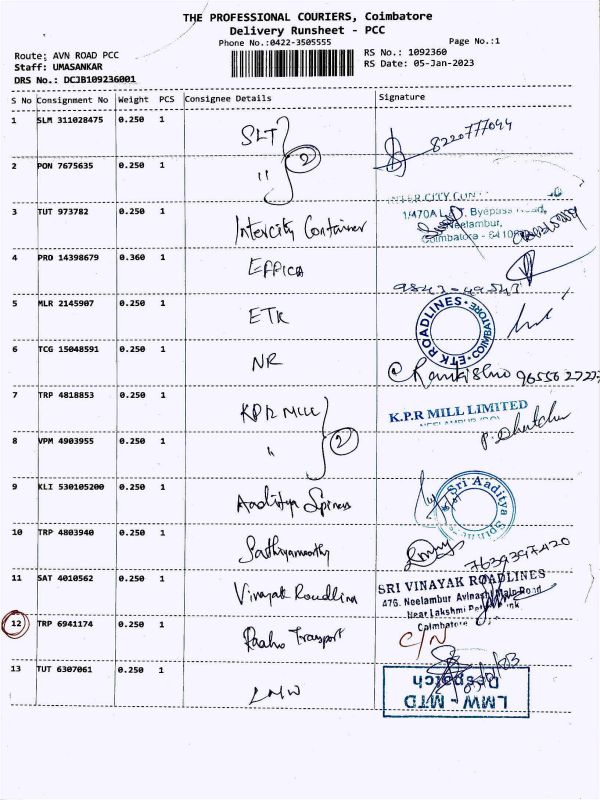 THE PROFESSIONAL COURIERS, Coimbatore
Delivery Runsheet - PCC
Phone No.:0422-3505555
Page No.:1
Route: AVN ROAD PCC
RS No.: 1092360
Staff: UMASANKAR
RS Date: 05-Jan-2023
DRS No.: DCJB109236001
S No Consignment No Weight PCS Consignee Details Signature
1 SLM 311028475 0.250 1 SLT 8220777094
2 PON 7675635 0.250 1 " 2
3 TUT 973782 0.250 1 Intercity Container
1/470A Byepass Road,
Neelambur,
Coimbatore
4 PRO 14398679 0.360 1 EFFICA
5 MLR 2145907 0.250 1 ETK
ETK ROADLINES COIMBATORE
6 TCG 15048591 0.250 1 NR
7 TRP 4818853 0.250 1 KPR MILL K.P.R MILL LIMITED
8 VPM 4903955 0.250 1 " 2
9 KLI 530105200 0.250 1 Aaditya Spiners Sri Aaditya
10 TRP 4803940 0.250 1 Sathiyamoorthy 7639397420
11 SAT 4010562 0.250 1 Vinayak Roadlina
SRI VINAYAK ROADLINES
476. Neelambur Avinashi Main Road
Near Lakshmi
Coimbatore
12 TRP 6941174 0.250 1 Transport C/N
13 TUT 6307061 0.250 1 LMW
Despatch
LMW - MTD